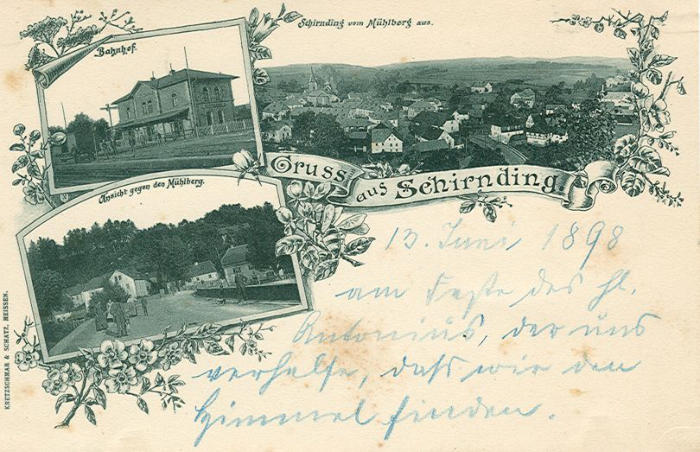 Schirnding vom Mühlberg aus.
Bahnhof.
Gruss aus Schirnding
Ansicht gegen den Mühlberg.
13. Juni 1898
am Feste des hl.
Antonius, der uns
verhalfe, daß wir den
Himmel finden.
KRETZSCHMAR & SCHATZ, MEISSEN.